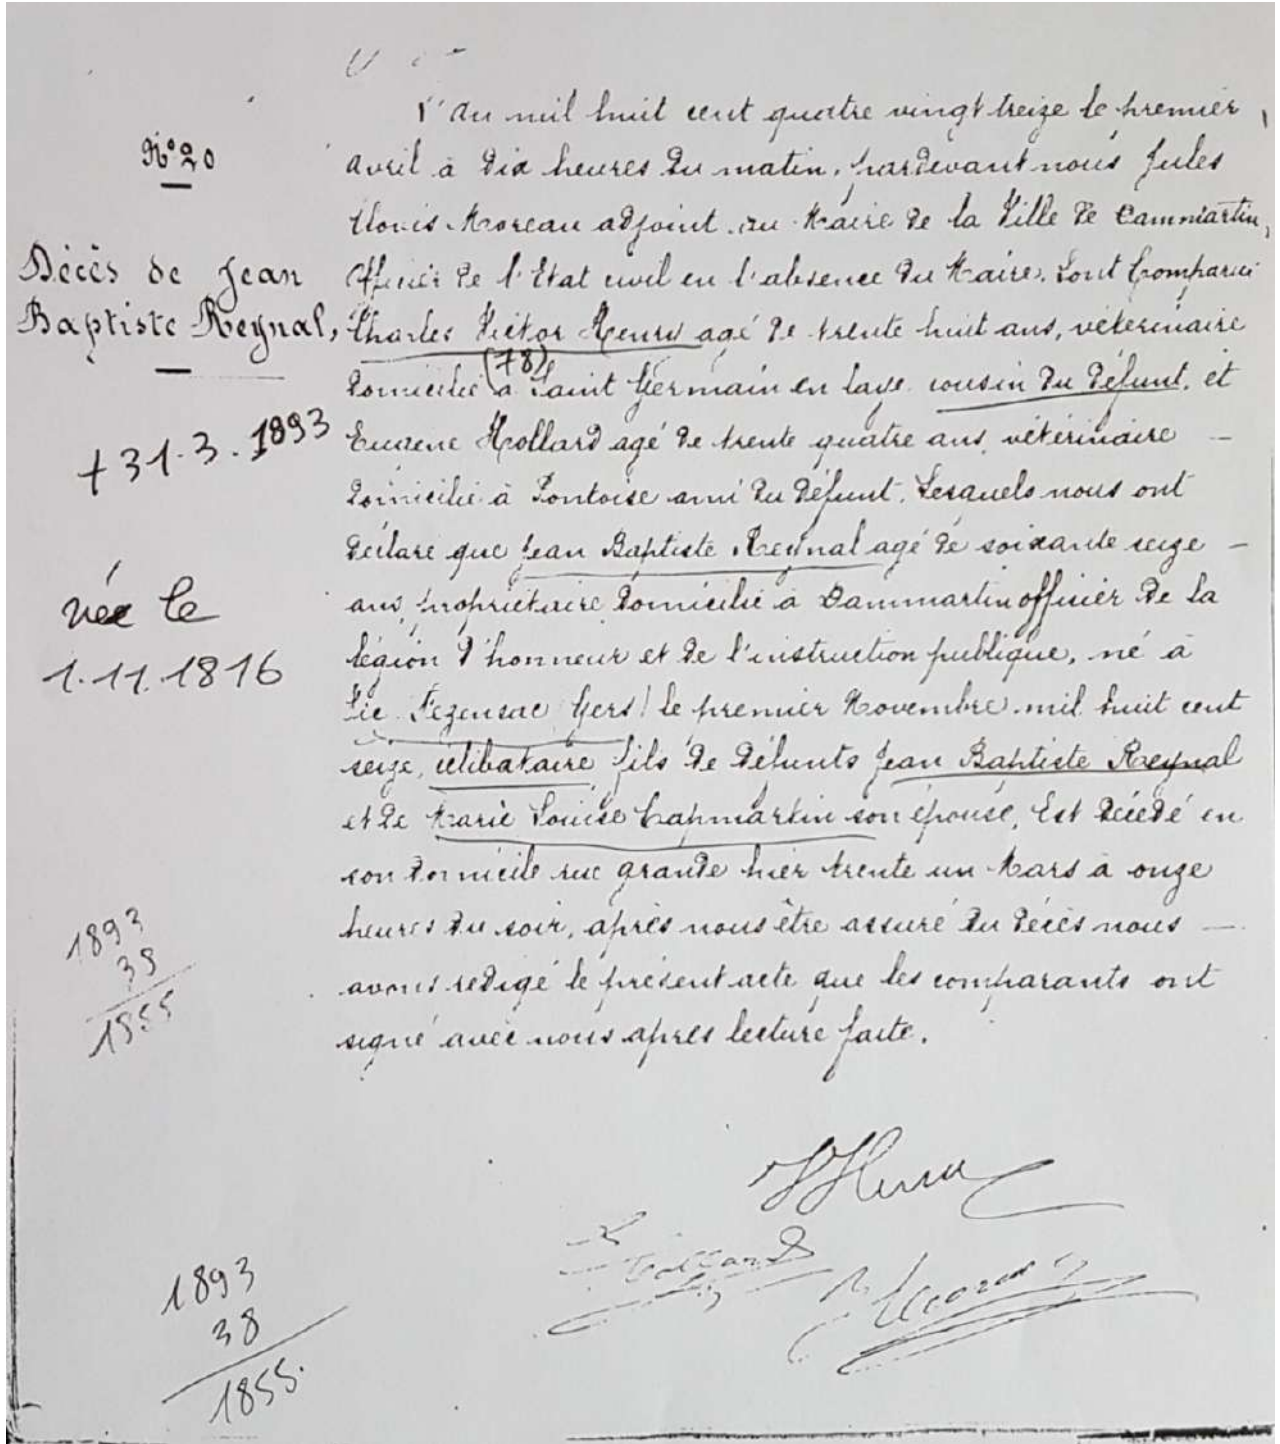 N° 20
Décès de Jean
Baptiste Reynal,
+ 31.3.1893
née le
1.11.1816
1893
38
1855
1893
38
1855.
L'an mil huit cent quatre vingt treize le premier
avril à dix heures du matin, pardevant nous Jules
Clovis Moreau adjoint au Maire de la Ville de Dammartin,
Officier de l'Etat civil en l'absence du Maire, Sont Comparus
Charles Victor Henry agé de trente huit ans, véterinaire
(78)
domicilié à Saint Germain en laye cousin du défunt, et
Eugene Hollard agé de trente quatre ans, vétérinaire —
domicilié à Pontoise ami du défunt, Lesquels nous ont
déclaré que Jean Baptiste Reynal agé de soixante seize —
ans, propriétaire domicilié à Dammartin officier de la
légion d'honneur et de l'instruction publique, né à
Vic Fezensac Gers) le premier Novembre mil huit cent
seize, célibataire fils de défunts Jean Baptiste Reynal
et de Marie Louise Capmartin son épouse, Est décédé en
son domicile rue grande hier trente un Mars à onze
heures du soir, après nous être assuré du décès nous —
avons redigé le présent acte que les comparants ont
signé avec nous après lecture faite.
VHenry
Hollard
Moreau